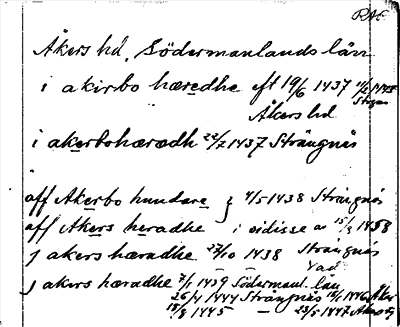 RAÄ
Åkers hd, Södermanlands län
i akirbo hæredhe eft 19/6 1437
Strgnäs
Åkers hd
i akerbohæradh 22/7 1437 Strängnäs
aff Akerbo hundare } 4/5 1438 Strängnäs
aff Akers heradhe i vidisse av 15/8 1458
j akers hæradhe 27/10 1438 Strängnäs
rad
j akers hæradhe 7/1 1439 Södermanl. län
26/4 1444 Strängnäs 16/1 1446
18/8 1445 — 23/5 1447